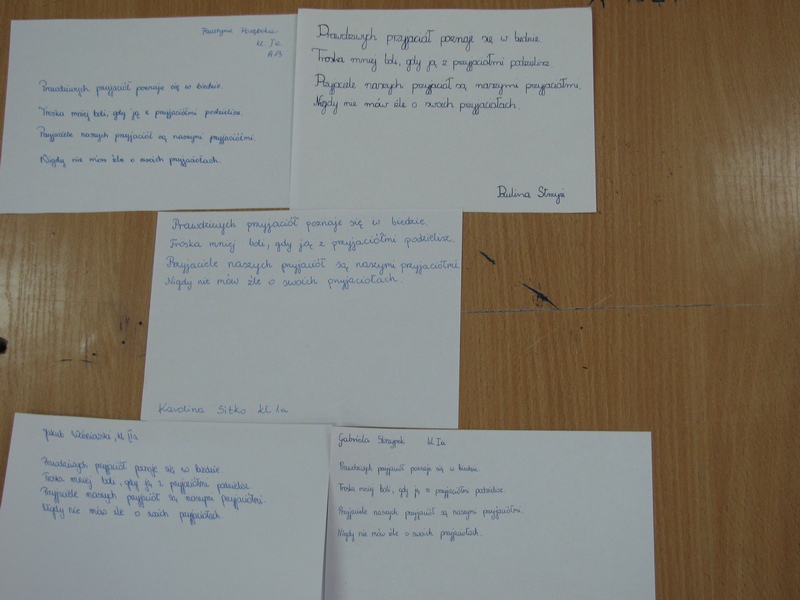 kl. Ia
Prawdziwych przyjaciół poznaje się w biedzie.
Troska mniej boli, gdy ją z przyjaciółmi podzielisz.
Przyjaciele naszych przyjaciół są naszymi przyjaciółmi.
Nigdy nie mów źle o swoich przyjaciołach.
Prawdziwych przyjaciół poznaje się w biedzie.
Troska mniej boli, gdy ją z przyjaciółmi podzielisz
Przyjaciele naszych przyjaciół są naszymi przyjaciółmi.
Nigdy nie mów źle o swoich przyjaciołach.
Paulina
Prawdziwych przyjaciół poznaje się w biedzie.
Troska mniej boli, gdy ją z przyjaciółmi podzielisz.
Przyjaciele naszych przyjaciół są naszymi przyjaciółmi
Nigdy nie mów źle o swoich przyjaciołach.
Karolina Sitko kl. 1a
Jakub
Prawdziwych przyjaciół poznaje się w biedzie
Troska mniej boli, gdy ją z przyjaciółmi podzielisz.
Przyjaciele naszych przyjaciół są naszymi przyjaciółmi.
Nigdy nie mów źle o swoich przyjaciołach
Gabriela kl. Ia
Prawdziwych przyjaciół poznaje się w biedzie.
Troska mniej boli, gdy ją z przyjaciółmi podzielisz.
Przyjaciele naszych przyjaciół są naszymi przyjaciółmi.
Nigdy nie mów źle o swoich przyjaciołach.